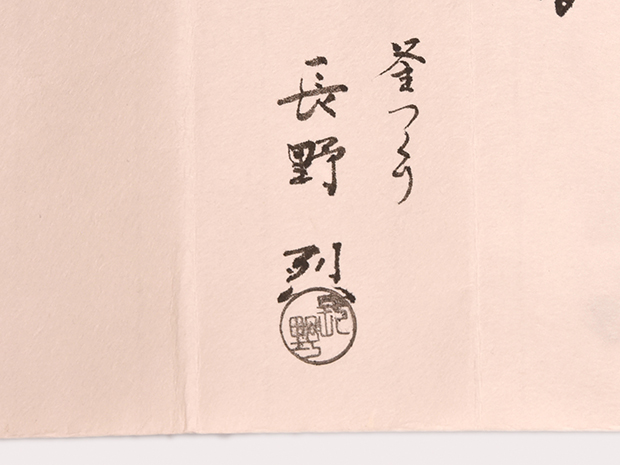 釜つくり
長野 烈
長野